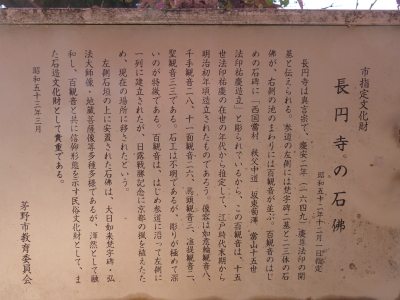 市指定文化財
長円寺の石佛
昭和五十二年十二月一日指定
長円寺は真言宗で、慶安二年（一六四九）慶尊法印の開
基と伝えられる。参道の左側には梵字碑二基と二六体の石
佛が、右側の池のまわりには百観音が並ぶ。百観音のはじ
めの石碑に「西国當村　秩父中道　坂東菊澤　當山十五世
法印祐慶造立」と彫られているから、この百観音は、十五
世法印祐慶の在世の年代から推定して、江戸時代末期から
明治初年頃造立されたものであろう。像容は如意輪観音八、
千手観音二八、十一面観音二六、馬頭観音三、准提観音二、
聖観音三三である。石工は不明であるが、彫りが極めて深
いのが特徴である。百観音は、はじめ参道に沿って左側に
一列に建立されたが、日露戦勝記念に京都の楓を植えたた
め、現在の場所に移されたという。
左側石垣の上に安置された石佛は、大日如来梵字碑・弘
法大師像・地蔵菩薩像等多種多様であるが、渾然として融
和し、百観音と共に信仰形態を示す民俗文化財として、ま
た石造文化財として貴重である。
昭和五十三年三月
茅野市教育委員会